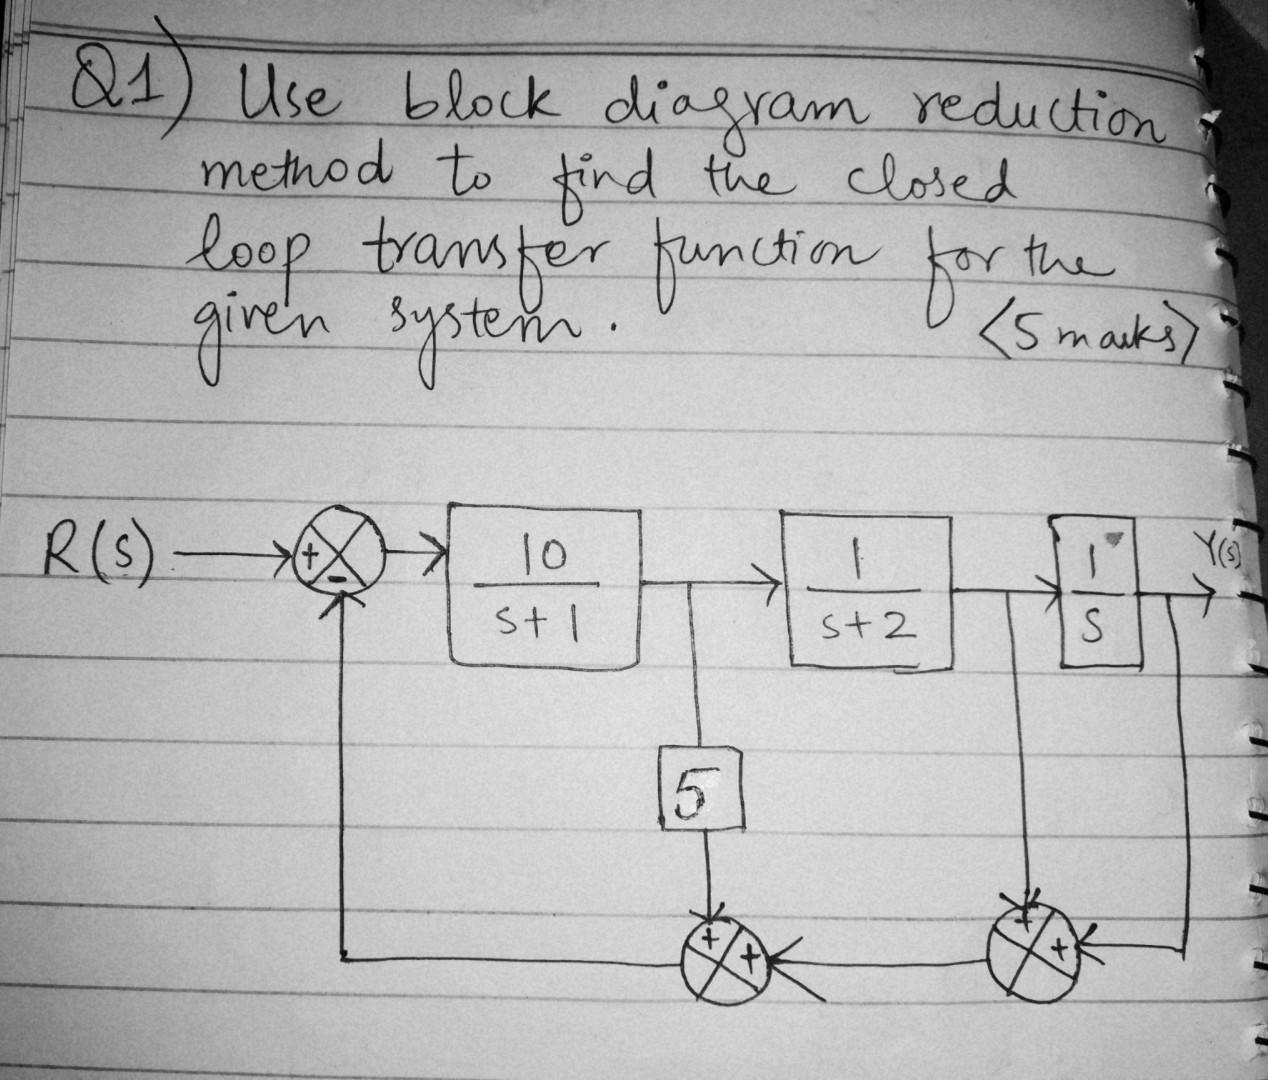 Q1) Use block diagram reduction
method to find the closed
loop transfer function for the
given system.
<5 marks>
R(s)
+
-
10
s+1
1
s+2
1
s
Y(s)
5
+
+
+
+